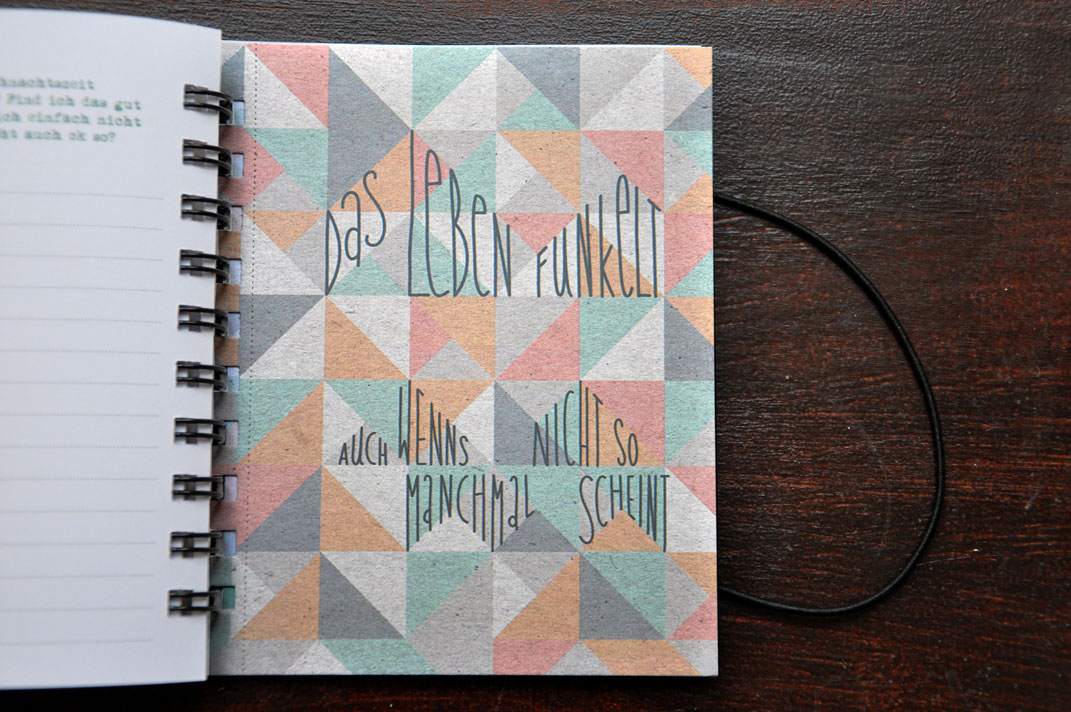 hnachtszeit
? Find ich das gut
ich einfach nicht
ht auch ok so?
Das LeBen FunkeLT
AUCH WENNS NICHT SO
MaNCHMaL SCHEINT